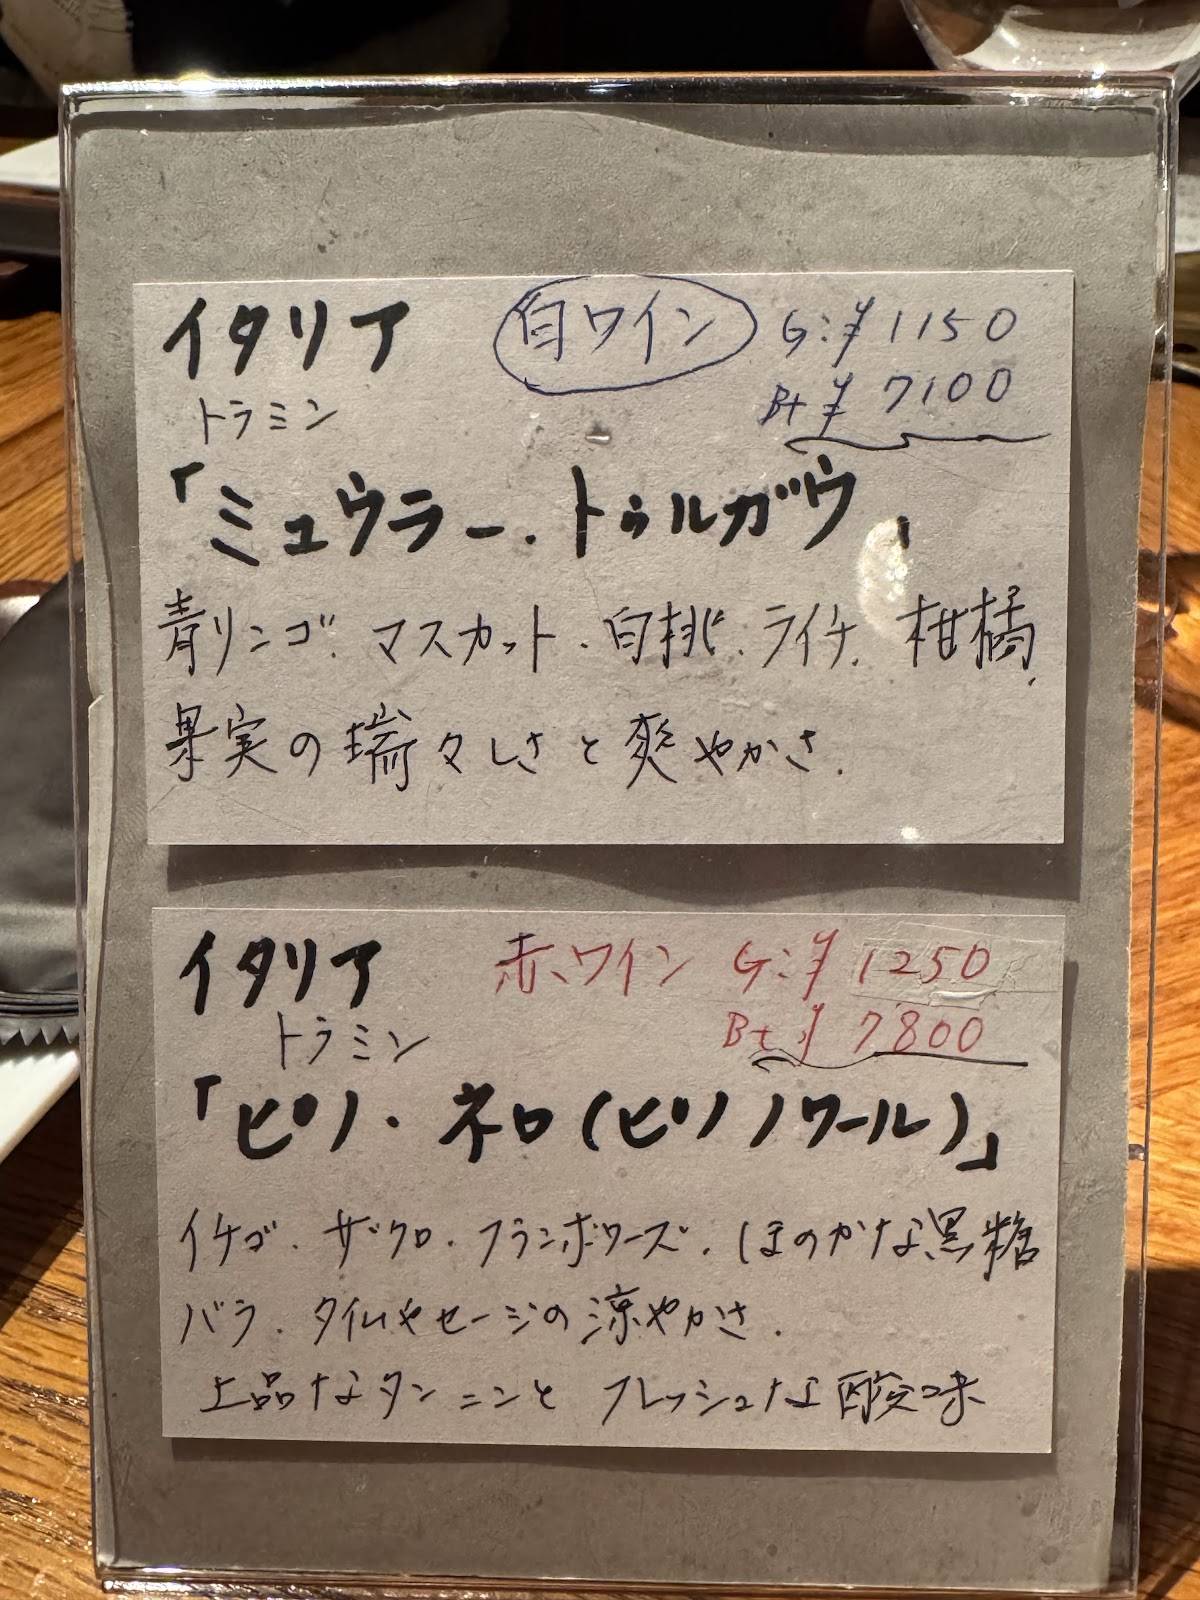 イタリア 白ワイン G:¥1150
トラミン Bt ¥7100
「ミュウラー.トゥルガウ」
青リンゴ.マスカット.白桃.ライチ.柑橘.
果実の瑞々しさと爽やかさ.
イタリア 赤ワイン G:¥1250
トラミン Bt ¥7800
「ピノ・ネロ(ピノノワール)」
イチゴ.ザクロ.フランボワーズ.ほのかな黒糖
バラ.タイムやセージの涼やかさ.
上品なタンニンとフレッシュな酸味